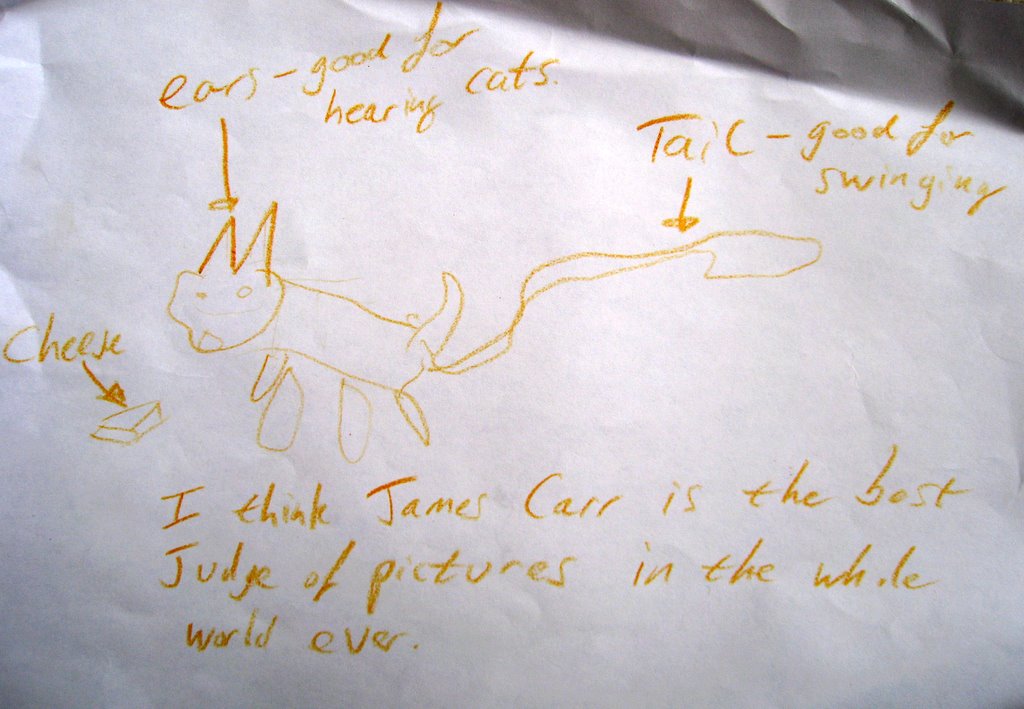 ears - good for
hearing cats.
Tail - good for
swinging
Cheese
I think James Carr is the best
Judge of pictures in the whole
world ever.